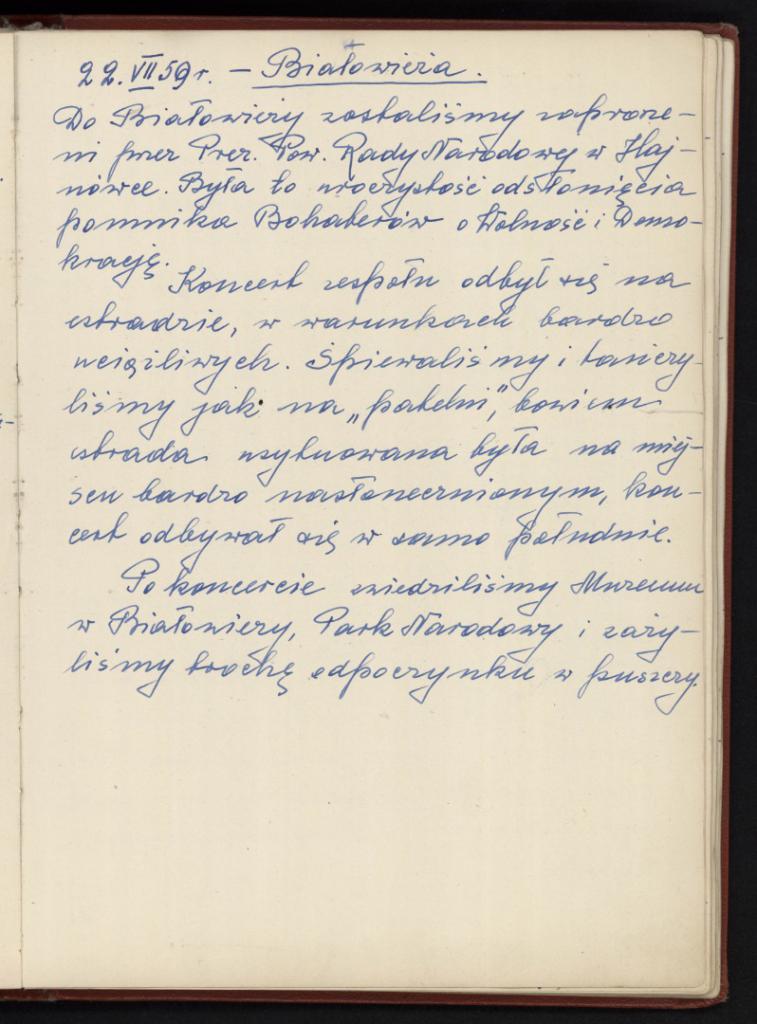 22.VII 59 r. – Białowieża.
Do Białowieży zostaliśmy zaprosze-
ni przez Prez. Pow. Rady Narodowej w Haj-
nówce. Była to uroczystość odsłonięcia
pomnika Bohaterów o Wolność i Demo-
krację.
Koncert zespołu odbył się na
estradzie, w warunkach bardzo
uciążliwych. Śpiewaliśmy i tańczy-
liśmy jak na „patelni”, bowiem
estrada usytuowana była na miej-
scu bardzo nasłonecznionym, kon-
cert odbywał się w samo południe.
Po koncercie zwiedziliśmy Muzeum
w Białowieży, Park Narodowy i zaży-
liśmy trochę odpoczynku w puszczy.